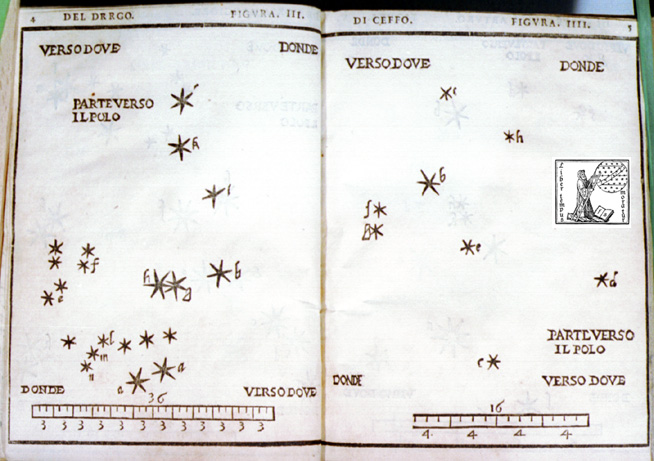 4 DEL DRAGO. FIGVRA. III.
VERSO DOVE DONDE
PARTE VERSO
IL POLO
h
f
h g b
e
l
m
n
a a
DONDE VERSO DOVE
36
3 3 3 3 3 3 3 3 3 3 3 3
DI CEFFO. FIGVRA. IIII. 5
VERSO DOVE DONDE
h
b
f
g
e
d
c
PARTE VERSO
IL POLO
DONDE VERSO DOVE
16
4 4 4 4
Liber tempus